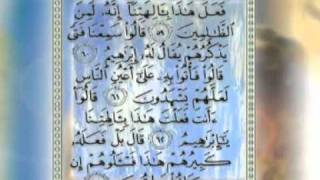 فَعَلَ هَٰذَا بِـَٔالِهَتِنَآ إِنَّهُۥ لَمِنَ
ٱلظَّـٰلِمِينَ ٥٩ قَالُوا۟ سَمِعْنَا فَتًى
يَذْكُرُهُمْ يُقَالُ لَهُۥٓ إِبْرَٰهِيمُ ٦٠
قَالُوا۟ فَأْتُوا۟ بِهِۦ عَلَىٰٓ أَعْيُنِ ٱلنَّاسِ
لَعَلَّهُمْ يَشْهَدُونَ ٦١ قَالُوٓا۟
ءَأَنتَ فَعَلْتَ هَٰذَا بِـَٔالِهَتِنَا
يَـٰٓإِبْرَٰهِيمُ ٦٢ قَالَ بَلْ فَعَلَهُۥ
كَبِيرُهُمْ هَٰذَا فَسْـَٔلُوهُمْ إِن